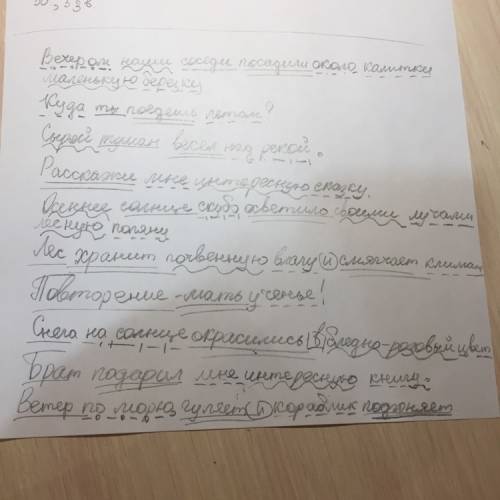 Вечером наши соседи посадили около калитки
маленькую берёзку
Куда ты поедешь летом?
Сырой туман висел над рекой.
Расскажи мне интересную сказку.
Осеннее солнце скубо осветило своими лучами
лесную поляну
Лес хранит почвенную влагу и смягчает климат
Повторение - мать ученье!
Снега на солнце окрасились в бледно-розовый цвет
Брат подарил мне интересную книгу.
Ветер по морю гуляет и кораблик подгоняет